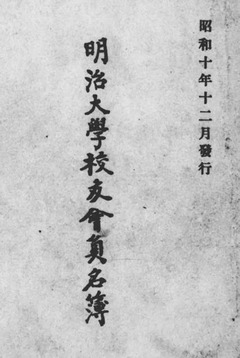 昭和十年十二月發行
明治大學校友會員名簿